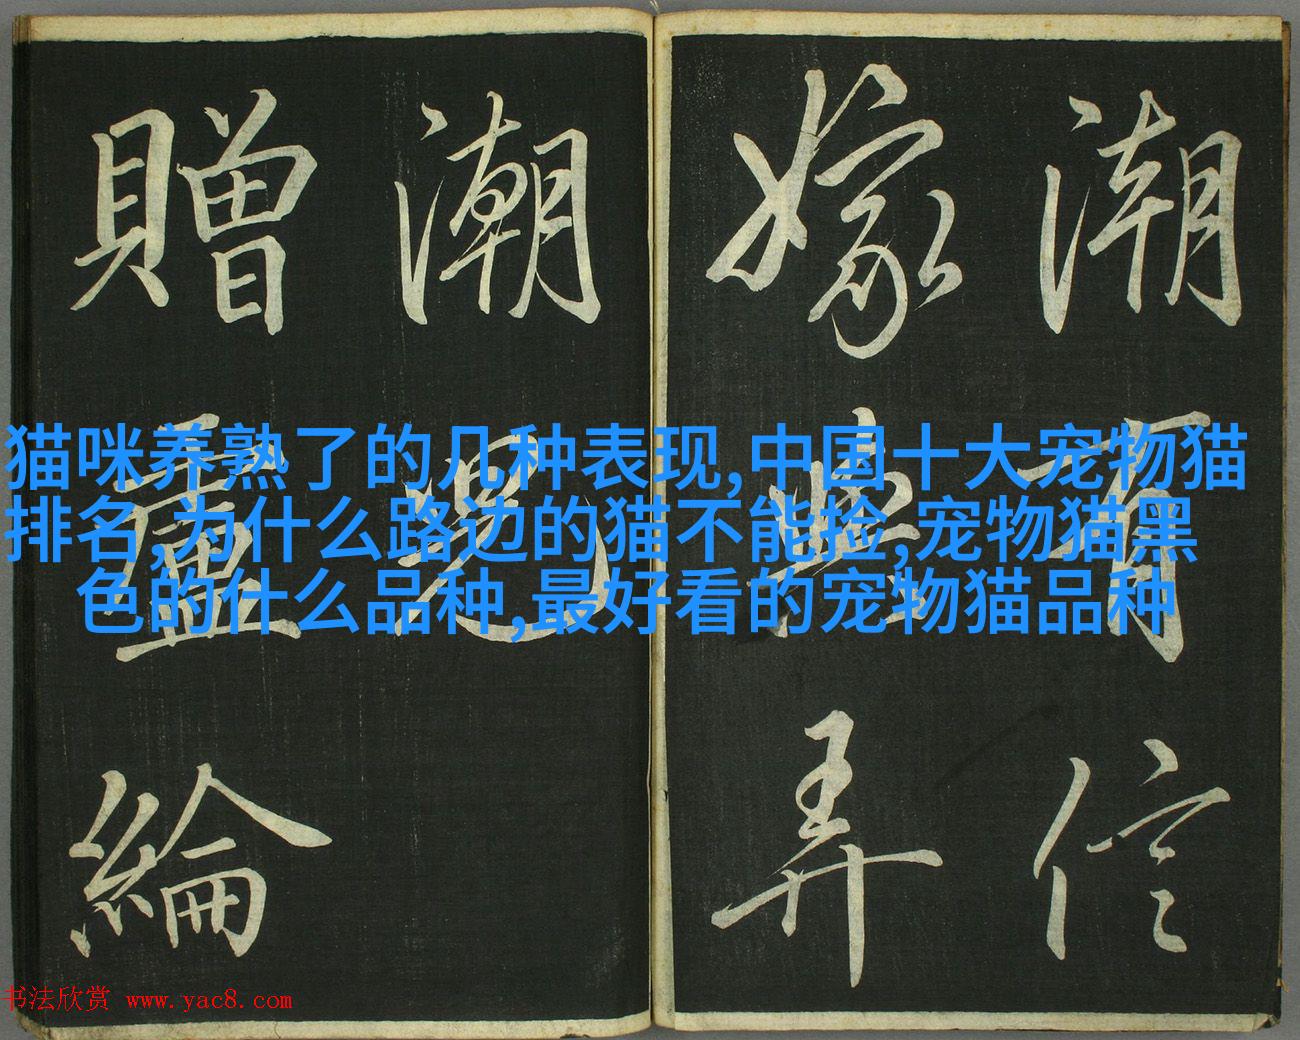 潮有信
嫁與弄
潮兒
贈盧綸
猫咪养熟了的几种表现,中国十大宠物猫
排名,为什么路边的猫不能捡,宠物猫黑
色的什么品种,最好看的宠物猫品种
书法欣赏 www.yac8.com